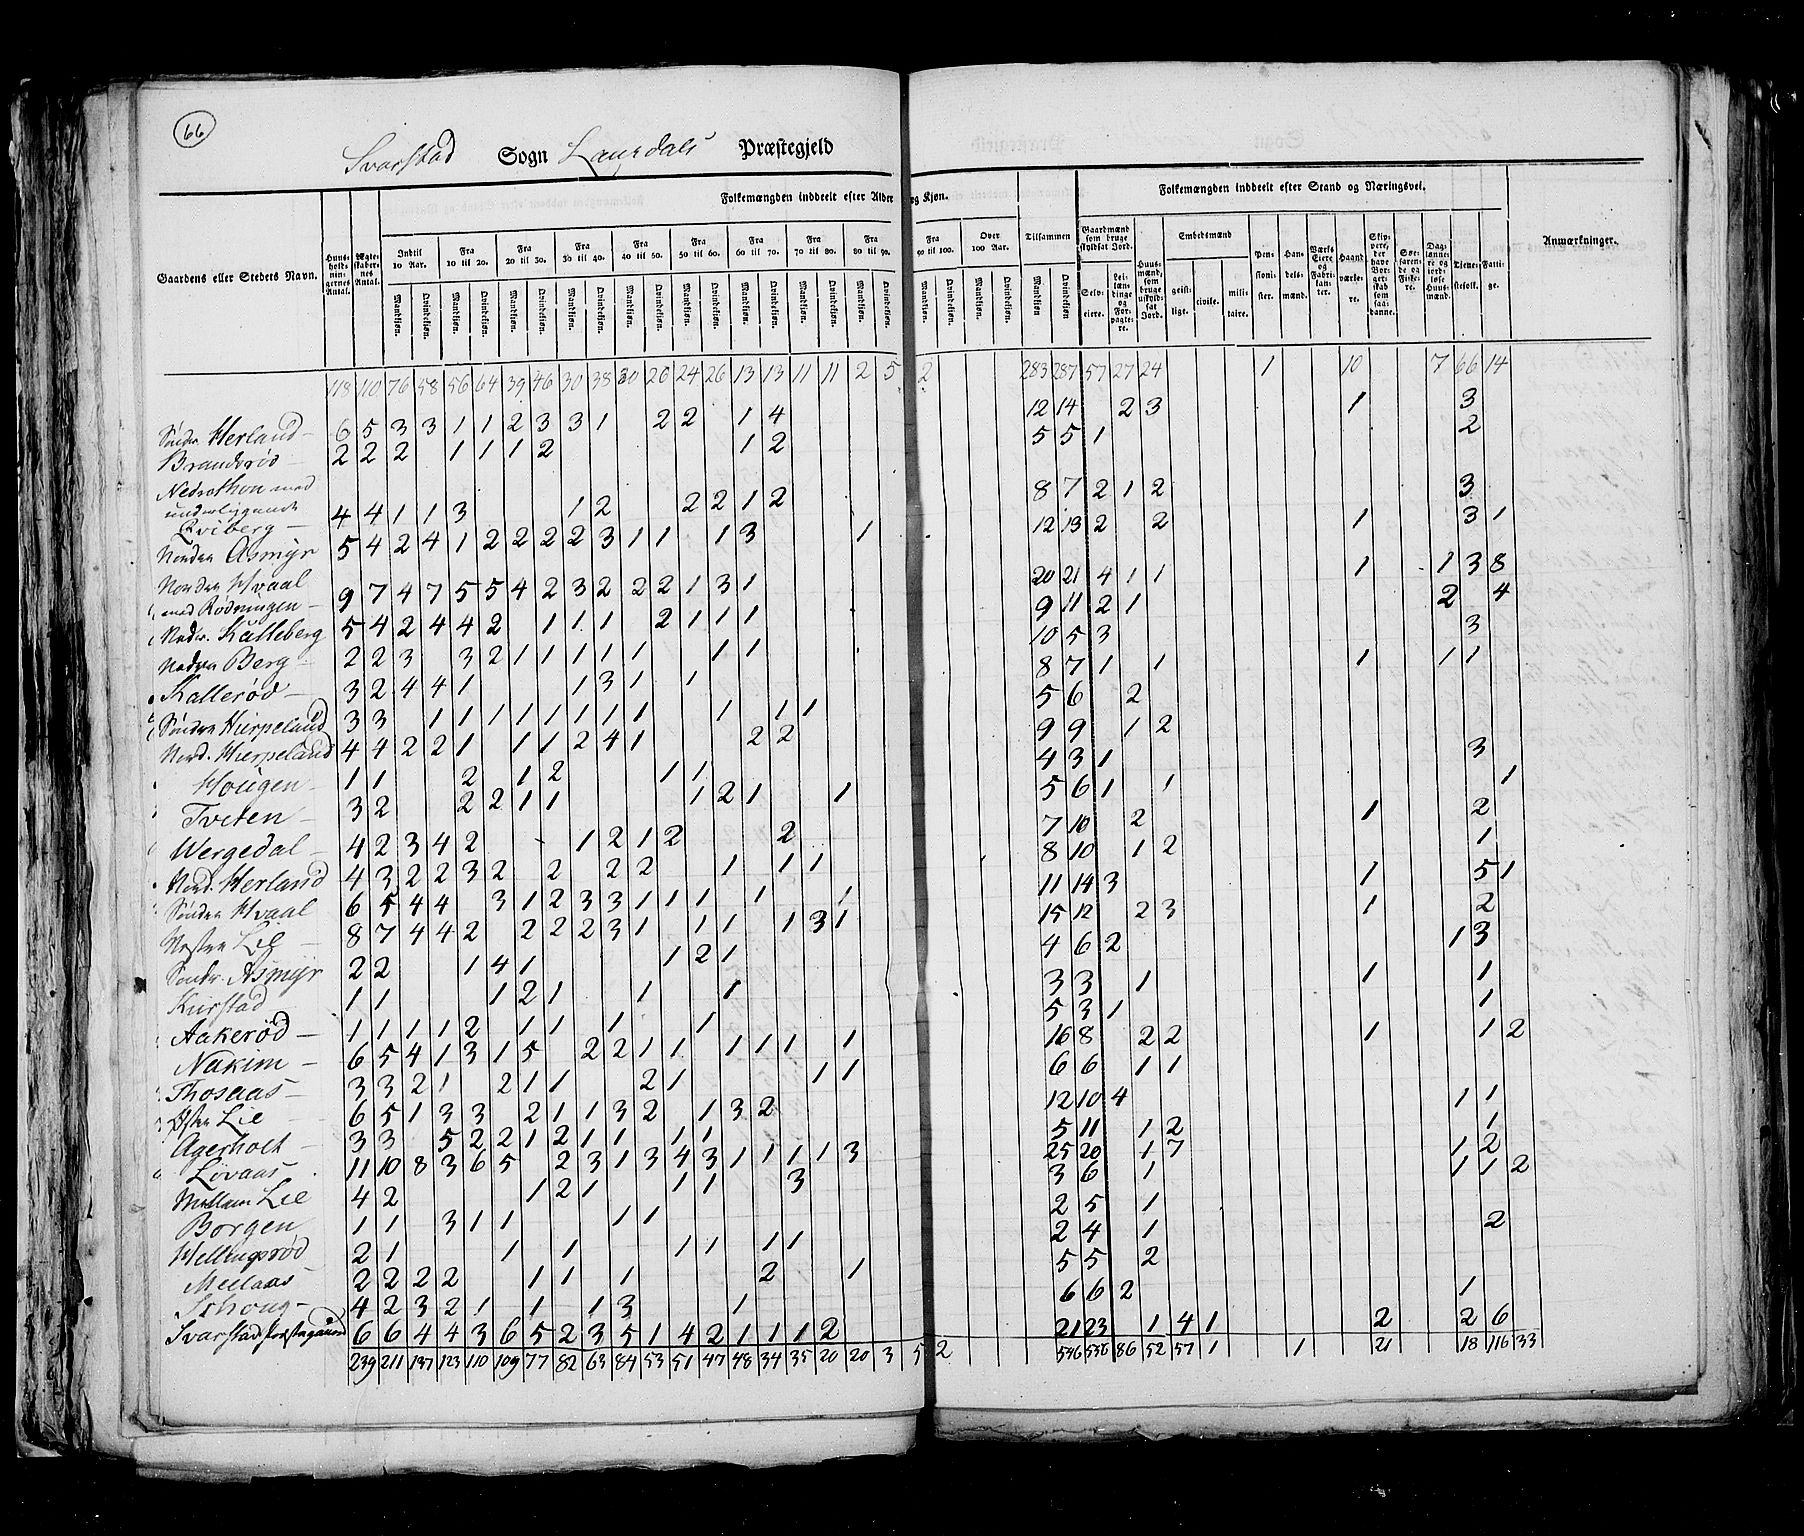 66
Svarstad Sogn Laurdals Præstegjeld
Folkemængden inddeelt efter Alder og Kjøn.
Folkemængden inddeelt efter Stand og Næringsvei.
Gaardens eller Stedets Navn.
Huusholdningernes Antal.
Ægteskabernes Antal.
Indtil 10 Aar.
Fra 10 til 20.
Fra 20 til 30.
Fra 30 til 40.
Fra 40 til 50.
Fra 50 til 60.
Fra 60 til 70.
Fra 70 til 80.
Fra 80 til 90.
Fra 90 til 100.
Over 100 Aar.
Tilsammen
Mandkjøn. Qvindekjøn.
Gaardmænd som bruge skyldsat Jord.
Selveiere. Leilændinge og Forpagtere.
Huusmænd, som bruge uskyldsat Jord.
Embedsmænd
geistlige. civile. militaire.
Pensionister.
Handelsmænd.
Værks Eiere og Fabrikanter.
Haandværkere.
Skippere, der have Borgerskab som saadanne.
Søefarende og Fiskere.
Daglønnere og jordløse Huusmænd.
Tjenestefolk.
Fattige.
Anmærkninger.
118 110 76 58 56 64 39 46 30 38 30 26 24 26 13 13 11 11 2 5 2 283 287 57 27 24 1 10 7 66 14
Søndre Herland 6 5 3 3 1 1 2 3 3 1 2 2 1 4 12 14 2 3 1 3
Brandsrød 2 2 2 1 1 1 2 1 2 5 5 1 2
Nedrethon med
underliggende
Qviberg 4 4 1 1 3 1 2 2 2 1 2 8 7 2 1 2 3
Nordre Asmyr 5 4 2 4 1 2 2 2 2 3 1 1 1 3 1 12 13 2 2 1 3 1
Nordre Hvaal
med Rødningen 9 7 4 7 5 5 4 2 3 2 2 2 1 3 1 20 21 4 1 1 1 1 3 8
Nedr. Kalleberg 5 4 2 4 4 2 1 1 1 2 1 1 1 9 11 2 1 2 4
Nedre Berg 2 2 3 3 2 1 1 1 1 1 1 1 10 5 3 3
Kallerød 3 2 4 4 1 1 3 1 1 8 7 1 1 1 1 1
Søndre Hierpeland 3 3 1 1 1 1 1 1 1 1 1 1 1 5 6 2
Nord. Hierpeland 4 4 2 2 1 1 1 2 4 1 2 2 9 9 1 2
Hougen 1 1 2 1 2 1 1 4 3 1 3
Tveten 3 2 2 2 1 1 1 2 1 1 5 6 1 1 1
Wergedal 4 2 3 4 2 1 2 1 2 2 7 10 2 1 2
Nord. Herland 4 3 2 2 3 2 2 2 2 1 1 1 8 10 1 2 1
Søndre Hvaal 6 5 4 4 3 1 2 3 3 1 1 1 1 1 11 14 3 1 5 1
Vestre Lie 8 7 4 4 2 2 2 2 3 1 1 1 1 3 1 15 12 2 3 1 2
Søndr. Asmyr 2 2 1 4 1 1 2 1 4 6 2 1 3
Kurstad 1 1 1 2 1 1 1 3 3 1 1 1
Aakerød 1 1 1 1 2 1 1 1 1 5 3 1 1
Nakim 6 5 4 1 3 1 5 2 2 1 1 1 1 1 1 16 8 2 2 1 1 2
Thosaas 3 3 2 1 2 1 1 2 1 1 1 6 6 1 1
Østre Lie 6 5 1 3 3 2 1 1 3 2 1 3 2 12 10 4 1 1
Agerholt 3 3 5 2 2 1 2 1 1 1 1 5 11 1 2 1
Lovaas 11 10 8 3 6 5 2 3 1 3 4 3 1 1 1 1 3 25 20 1 7 1 2
Mellem Lie 4 2 1 2 1 1 1 3 3 6 1 1 1 2
Borgen 1 1 3 1 1 1 1 2 5 1
Wellingsrød 2 1 1 1 1 1 1 1 2 4 1 2
Meelaas 2 2 2 2 1 1 1 2 1 5 5 2
Schoug 4 2 3 2 1 1 1 3 1 6 6 2 1
Svarstads Præstegaard 6 6 4 4 3 6 5 2 3 5 1 4 2 1 1 1 2 21 23 1 4 1 2 2 6
239 211 137 123 110 109 77 82 63 84 53 51 47 48 34 35 20 20 3 5 2 536 536 86 52 57 1 1 21 18 116 33